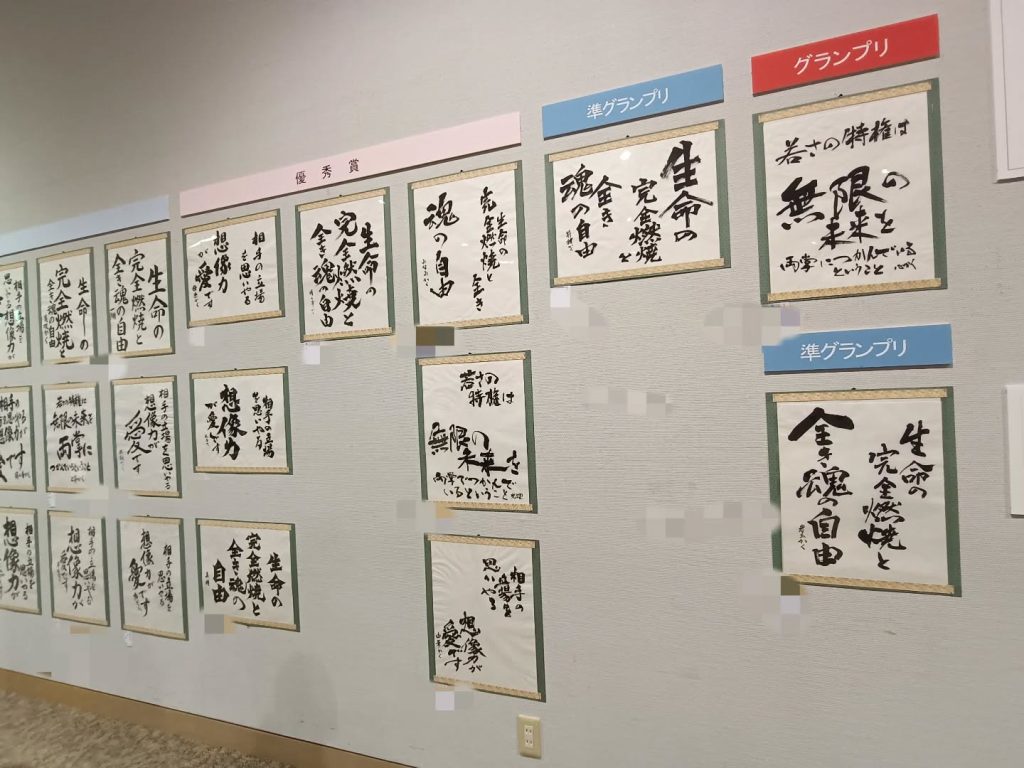 グランプリ
若さの特権は
無限の
未来を
両掌につかんでいる
ということ
準グランプリ
生命の
完全燃焼と
全き
魂の自由
準グランプリ
生命の
完全燃焼と
全き魂の自由
優秀賞
生命の
完全燃焼と
全き
魂の自由
生命の
完全燃焼と
全き魂の自由
相手の立場
を思いやる
想像力
が愛です
若さの
特権は
無限の
未来を
両掌でつかんで
いるということ
相手の立場
を思いやる
想像力
が愛です
相手の
立場を
思いやる
想像力が
愛です
生命の
完全燃焼と
全き魂の
自由
生命の
完全燃焼と
全き魂の自由
生命の
完全燃焼と
全き魂の自由
相手の立場を
思いやる
想像力が
相手の立場を思いやる
想像力が
愛です
若さの特権は
無限の未来を
両掌に
つかんでいるということ
相手の立場を
思いやる
想像力が
愛です
相手の立場を
思いやる
想像力が
愛です
相手の立場を
思いやる
想像力